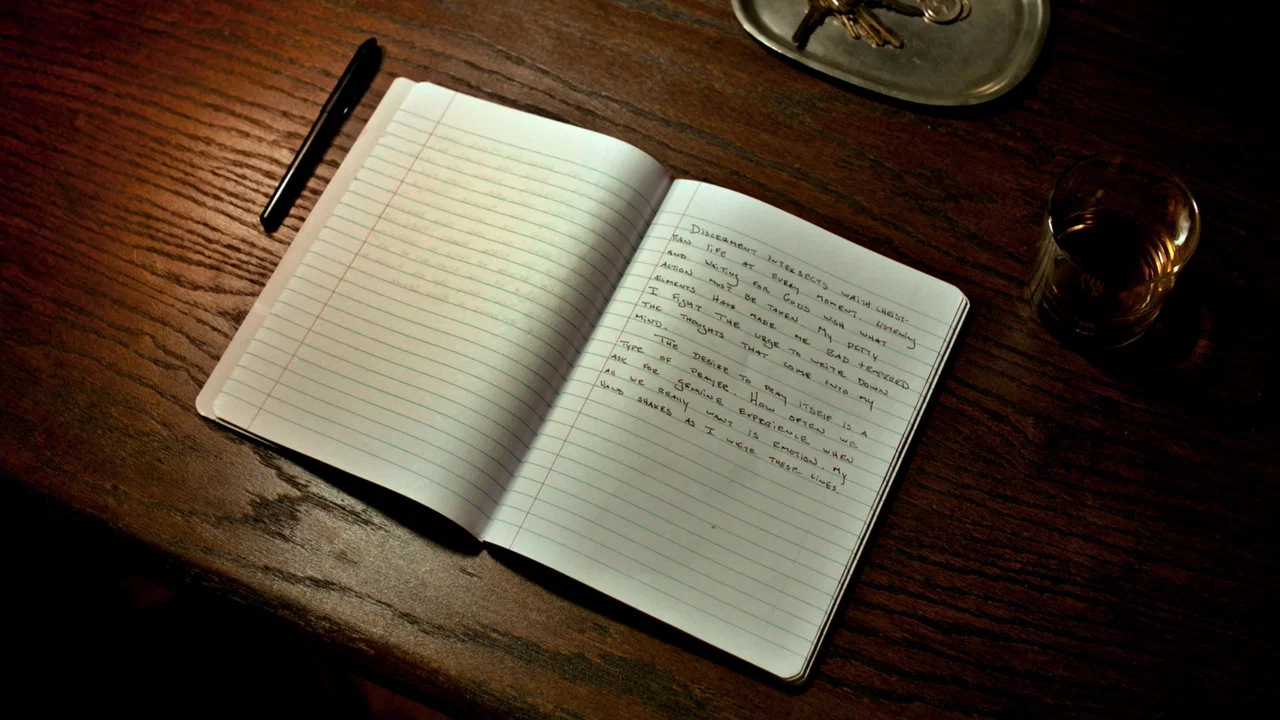 DISCERNMENT INTERSECTS WHITH CHRIST-
IAN LIFE AT EVERY MOMENT. LISTENING
AND WAITING FOR GODS WISH WHAT
ACTION MUST BE TAKEN. MY PETTY
AILMENTS HAVE MADE ME BAD TEMPERED
I FIGHT THE URGE TO WRITE DOWN
THE THOUGHTS THAT COME INTO MY
MIND.
THE DESIRE TO PRAY ITSELF IS A
TYPE OF PRAYER. HOW OFTEN WE
ASK FOR GENUINE EXPERIENCE WHEN
ALL WE REALLY WANT IS EMOTION. MY
HAND SHAKES AS I WRITE THESE LINES.